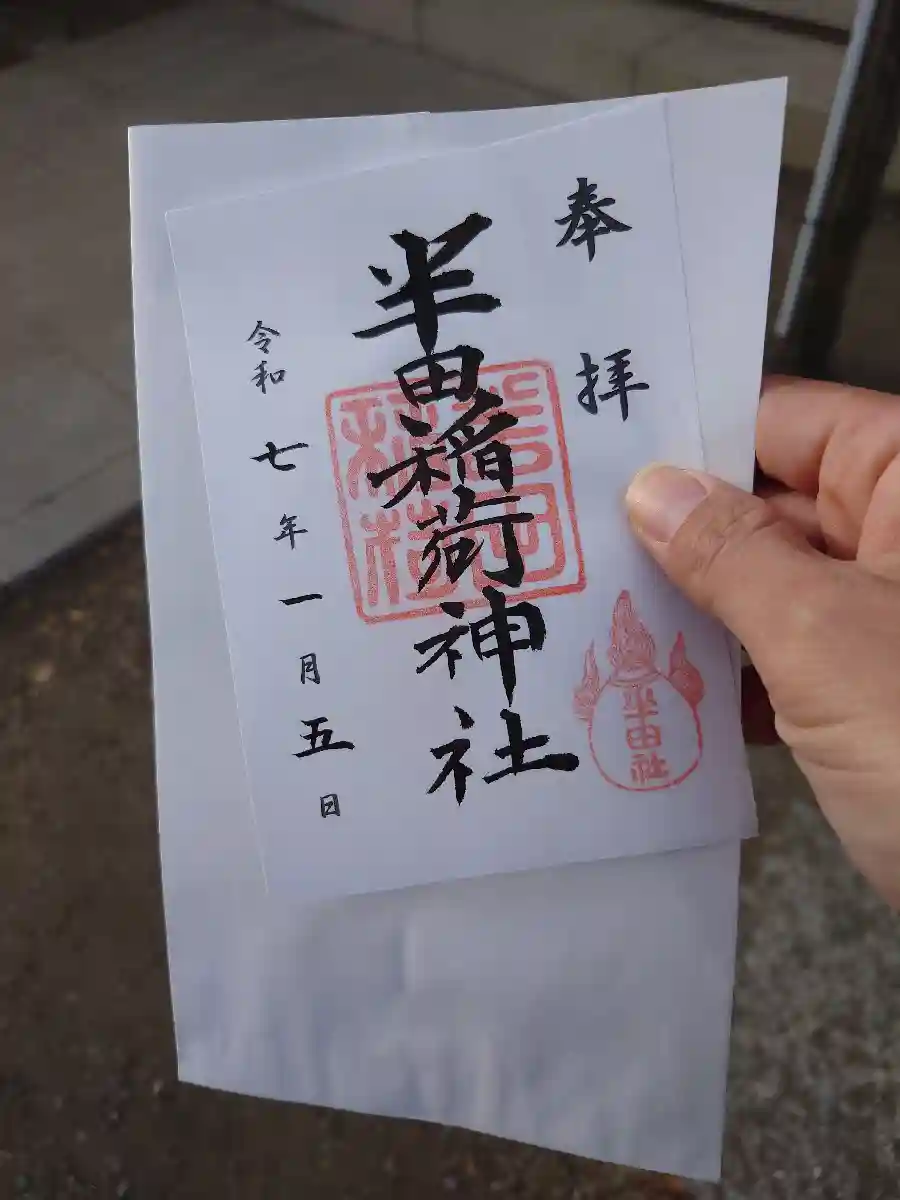 奉拝
半田稲荷神社
令和七年一月五日
半田社